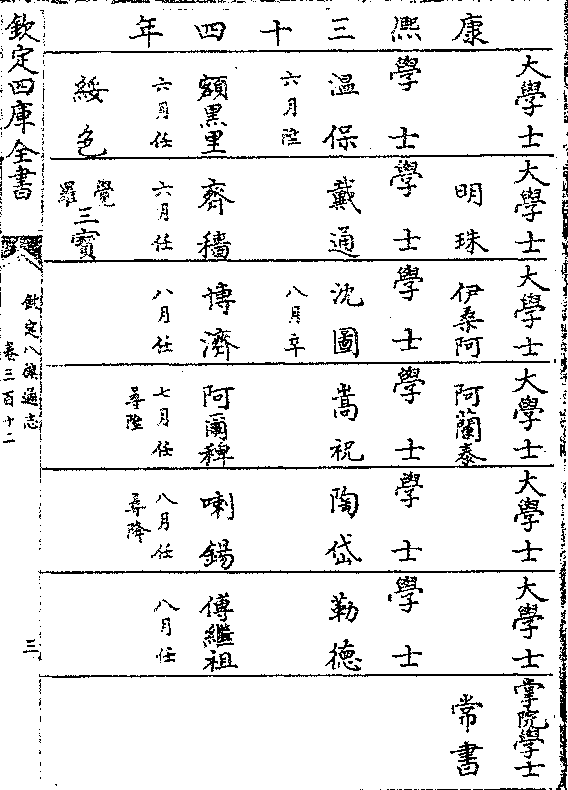 康熙三十四年
大學士
學士
温保
六月陞
額黑里
六月任
綏色
大學士
明珠
學士
戴通
齊穡
六月任
覺羅三寶
大學士
伊桑阿
學士
沈圖
八月卒
博濟
八月任
大學士
阿蘭泰
學士
嵩祝
阿爾稗
七月任
尋陞
大學士
學士
陶岱
喇錫
八月任
尋降
大學士
學士
勒德
傅繼祖
八月任
掌院學士
常書
欽定四庫全書
欽定八旗通志
卷三百十二
三